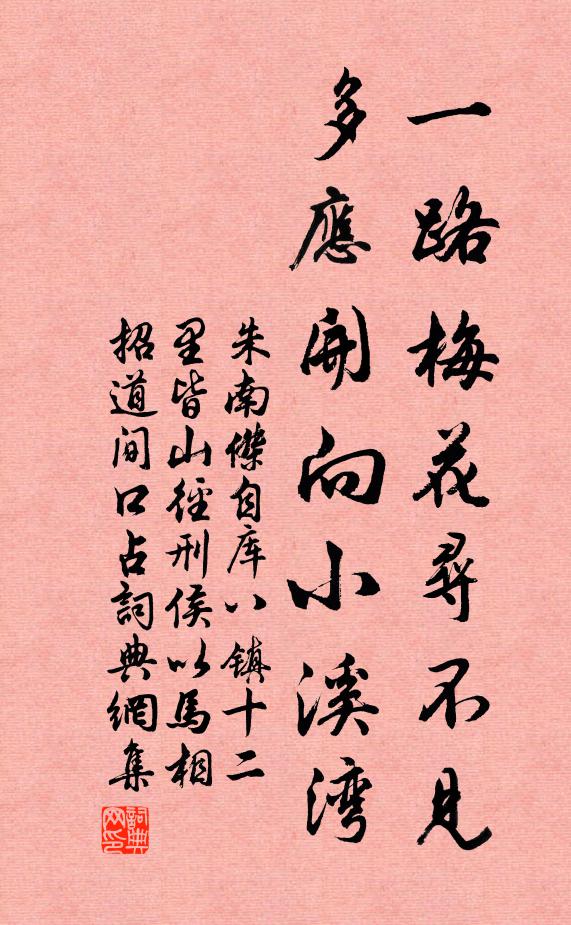 一路梅花尋不見
多應開向小溪灣
朱南傑自库八鎮十二
里皆山徑刑侯以馬相
招道间口占詞典網集
詞典網印